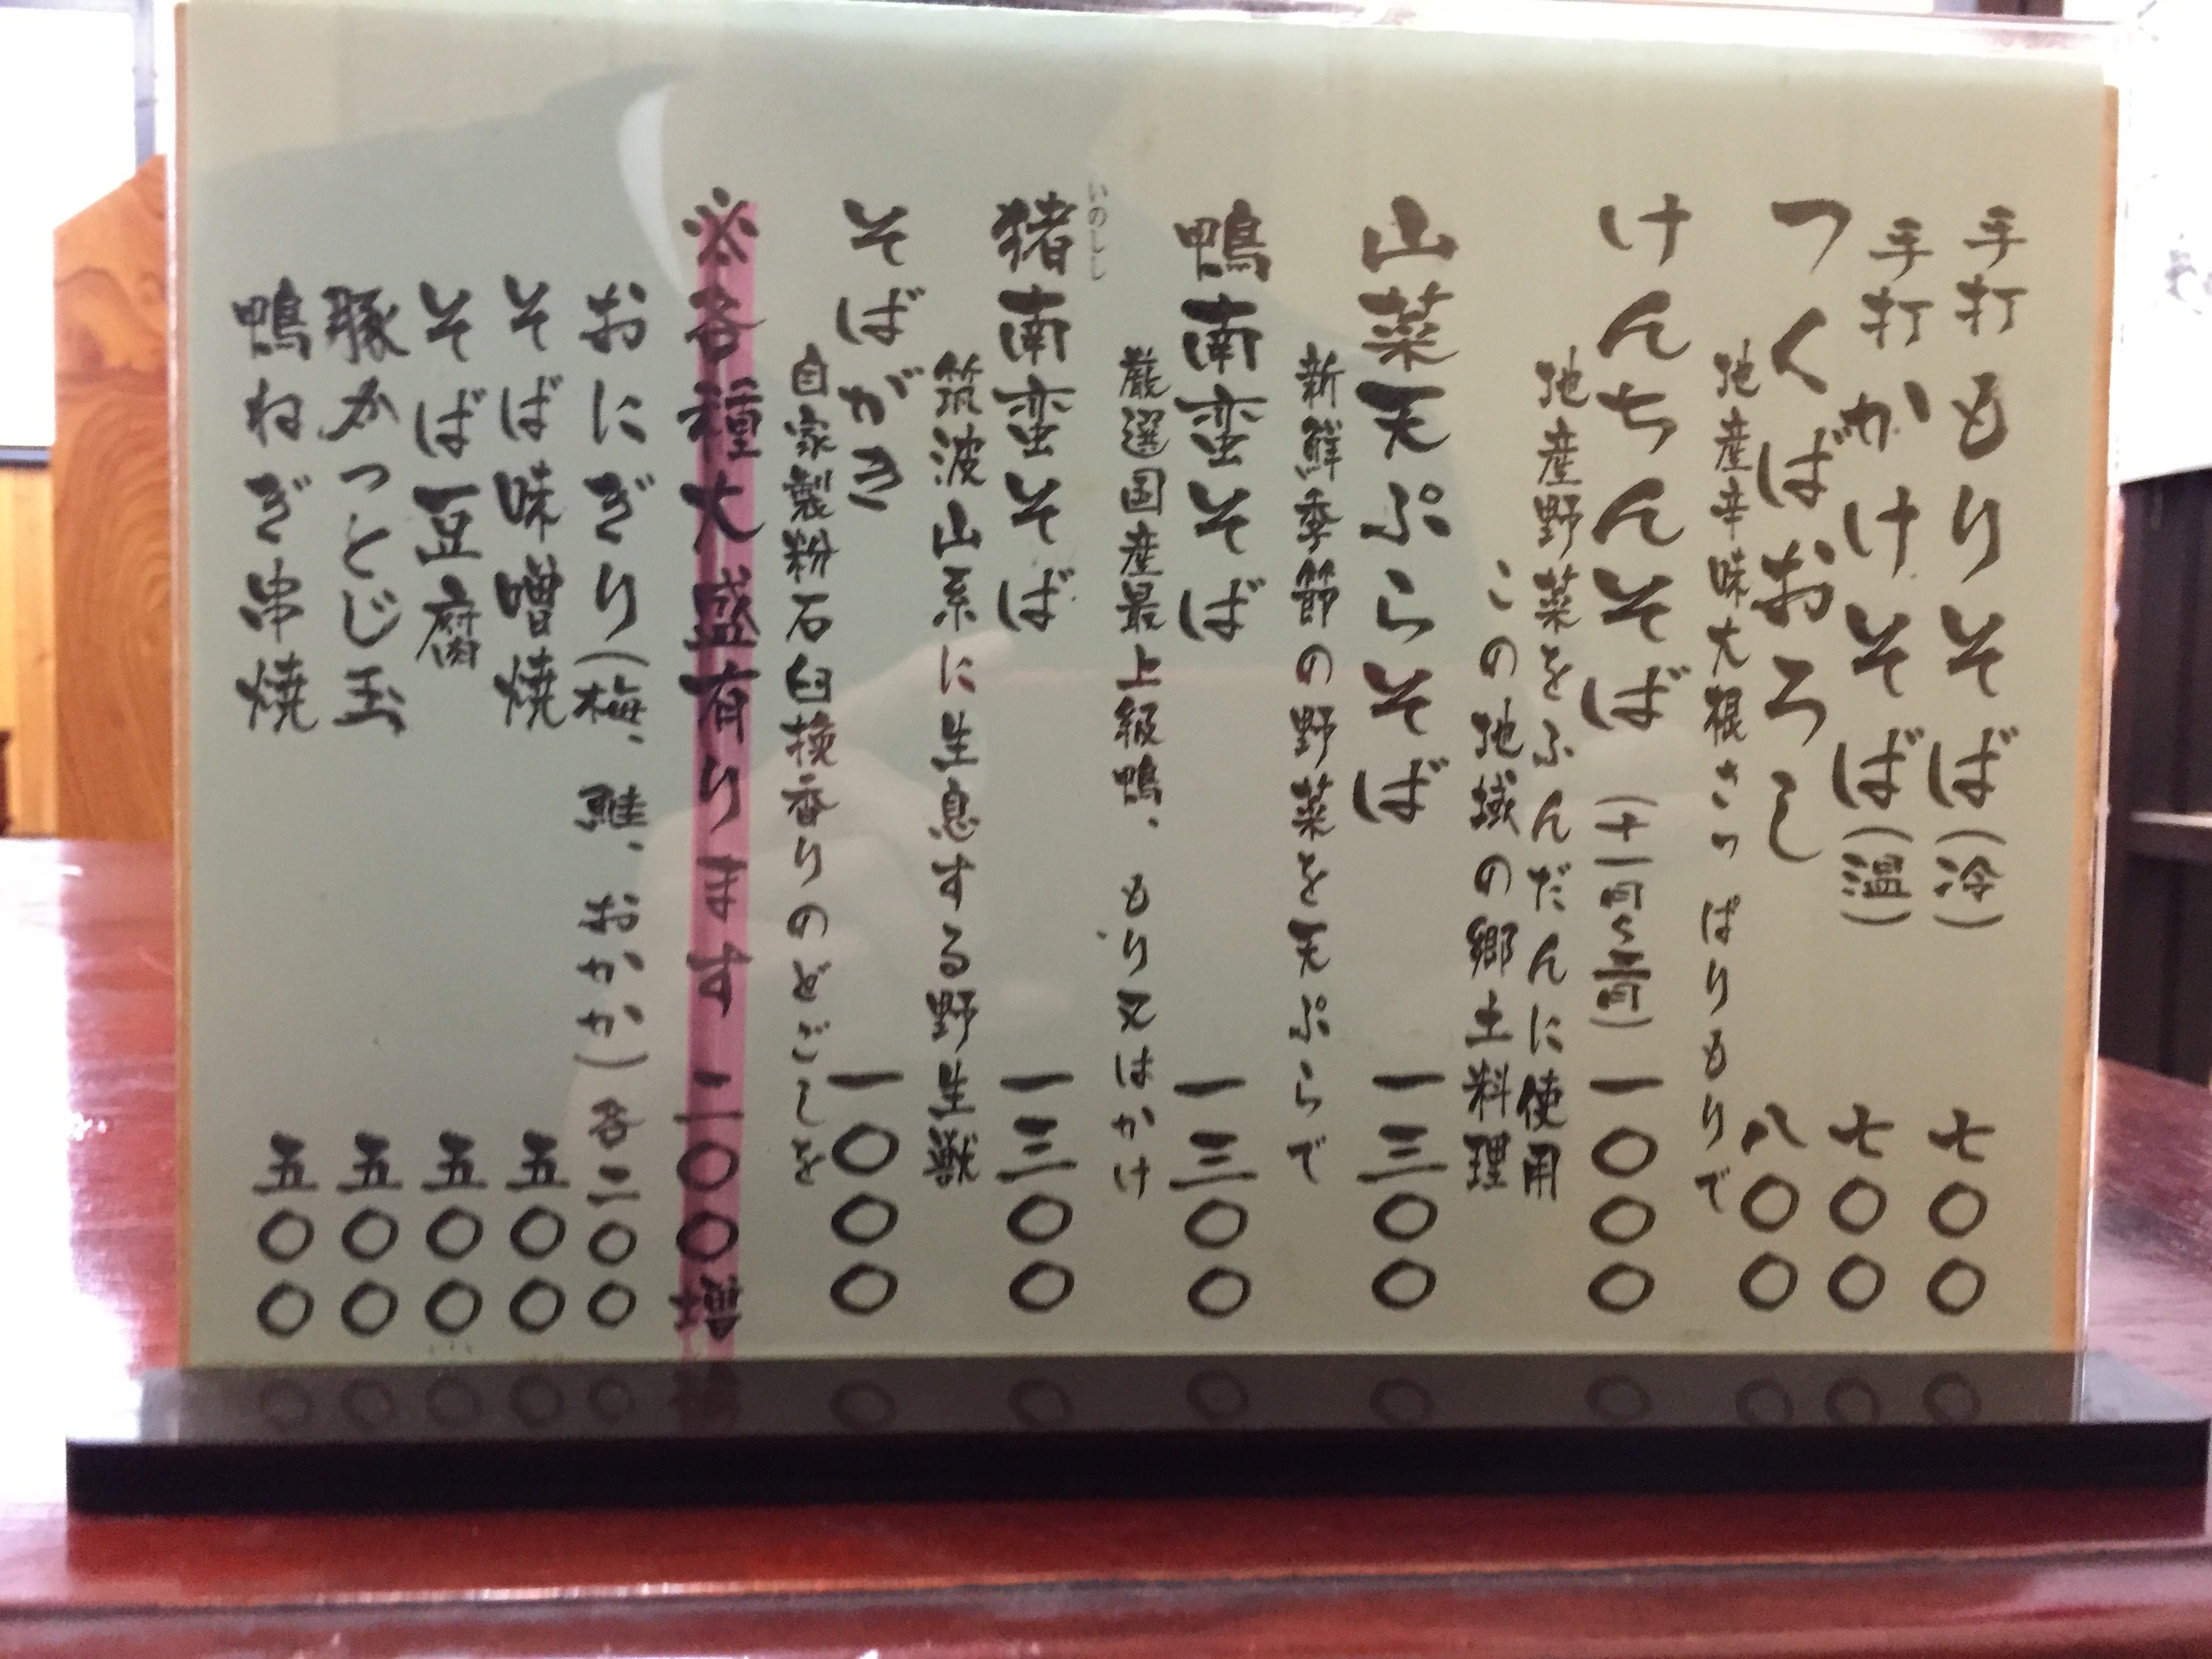 手打もりそば(冷) 七〇〇
手打かけそば(温) 七〇〇
つくばおろし 八〇〇
地産辛味大根さっぱりもりで
けんちんそば (十一月〜三月) 一〇〇〇
地産野菜をふんだんに使用
この地域の郷土料理
山菜天ぷらそば 一三〇〇
新鮮季節の野菜を天ぷらで
鴨南蛮そば 一三〇〇
厳選国産最上級鴨、もり又はかけ
いのしし
猪南蛮そば 一三〇〇
筑波山系に生息する野生獣
そばがき 一〇〇〇
自家製粉石臼挽香りのどごしを
※各種大盛有ります 二〇〇増
おにぎり(梅、鮭、おかか) 各二〇〇
そば味噌焼 五〇〇
そば豆腐 五〇〇
豚かつとじ玉 五〇〇
鴨ねぎ串焼 五〇〇